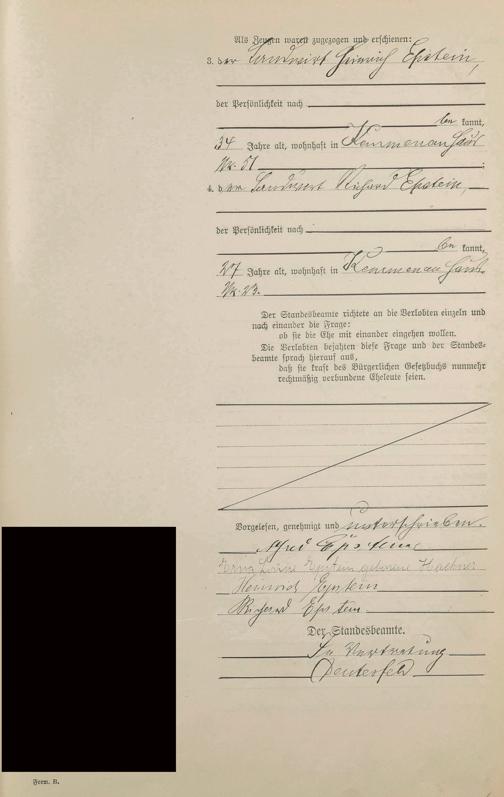 Als Zeugen waren zugezogen und erschienen:
3. der Landwirt Heinrich Epstein,
der Persönlichkeit nach
be kannt,
34 Jahre alt, wohnhaft in
Nr. 51
4. der Landwirt Richard Epstein,
der Persönlichkeit nach
be kannt,
27 Jahre alt, wohnhaft in
Nr. 23.
Der Standesbeamte richtete an die Verlobten einzeln und
nach einander die Frage:
ob sie die Ehe mit einander eingehen wollen.
Die Verlobten bejahten diese Frage und der Standes-
beamte sprach hierauf aus,
daß sie kraft des Bürgerlichen Gesetzbuchs nunmehr
rechtmäßig verbundene Eheleute seien.
Vorgelesen, genehmigt und unterschrieben.
Alfred Epstein
Erna Epstein geborene
Heinrich Epstein
Richard Epstein
Der Standesbeamte.
In Vertretung
Form. B.